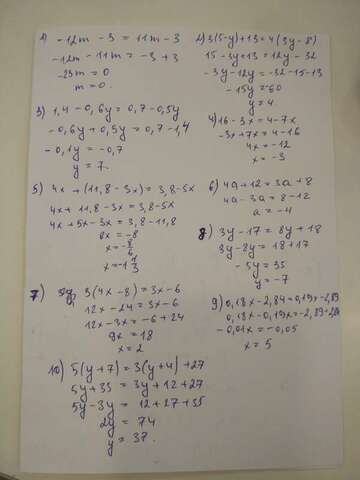 1) -12m - 3 = 11m - 3
-12m - 11m = -3 + 3
-23m = 0
m = 0.
2) 3(5-y)+13=4(3y-8)
15-3y+13=12y-32
-3y-12y=-32-15-13
-15y=-60
y=4.
3) 1,4-0,6y=0,7-0,5y
-0,6y+0,5y=0,7-1,4
-0,1y=-0,7
y=7.
4) 16-3x=4-7x
-3x+7x=4-16
4x=-12
x=-3
5) 4x+(11,8-3x)=3,8-5x
4x+11,8-3x=3,8-5x
4x+5x-3x=3,8-11,8
6x=-8
x=-8/6
x=-1 1/3
6) 4a+12=3a+8
4a-3a=8-12
a=-4
7) 3(4x-8)=3x-6
12x-24=3x-6
12x-3x=-6+24
9x=18
x=2
8) 3y-17=8y+18
3y-8y=18+17
-5y=35
y=-7
9) 0,18x-2,84=0,19x-2,89
0,18x-0,19x=-2,89+2,84
-0,01x=-0,05
x=5
10) 5(y+7)=3(y+4)+27
5y+35=3y+12+27
5y-3y=12+27+35
2y=74
y=37.